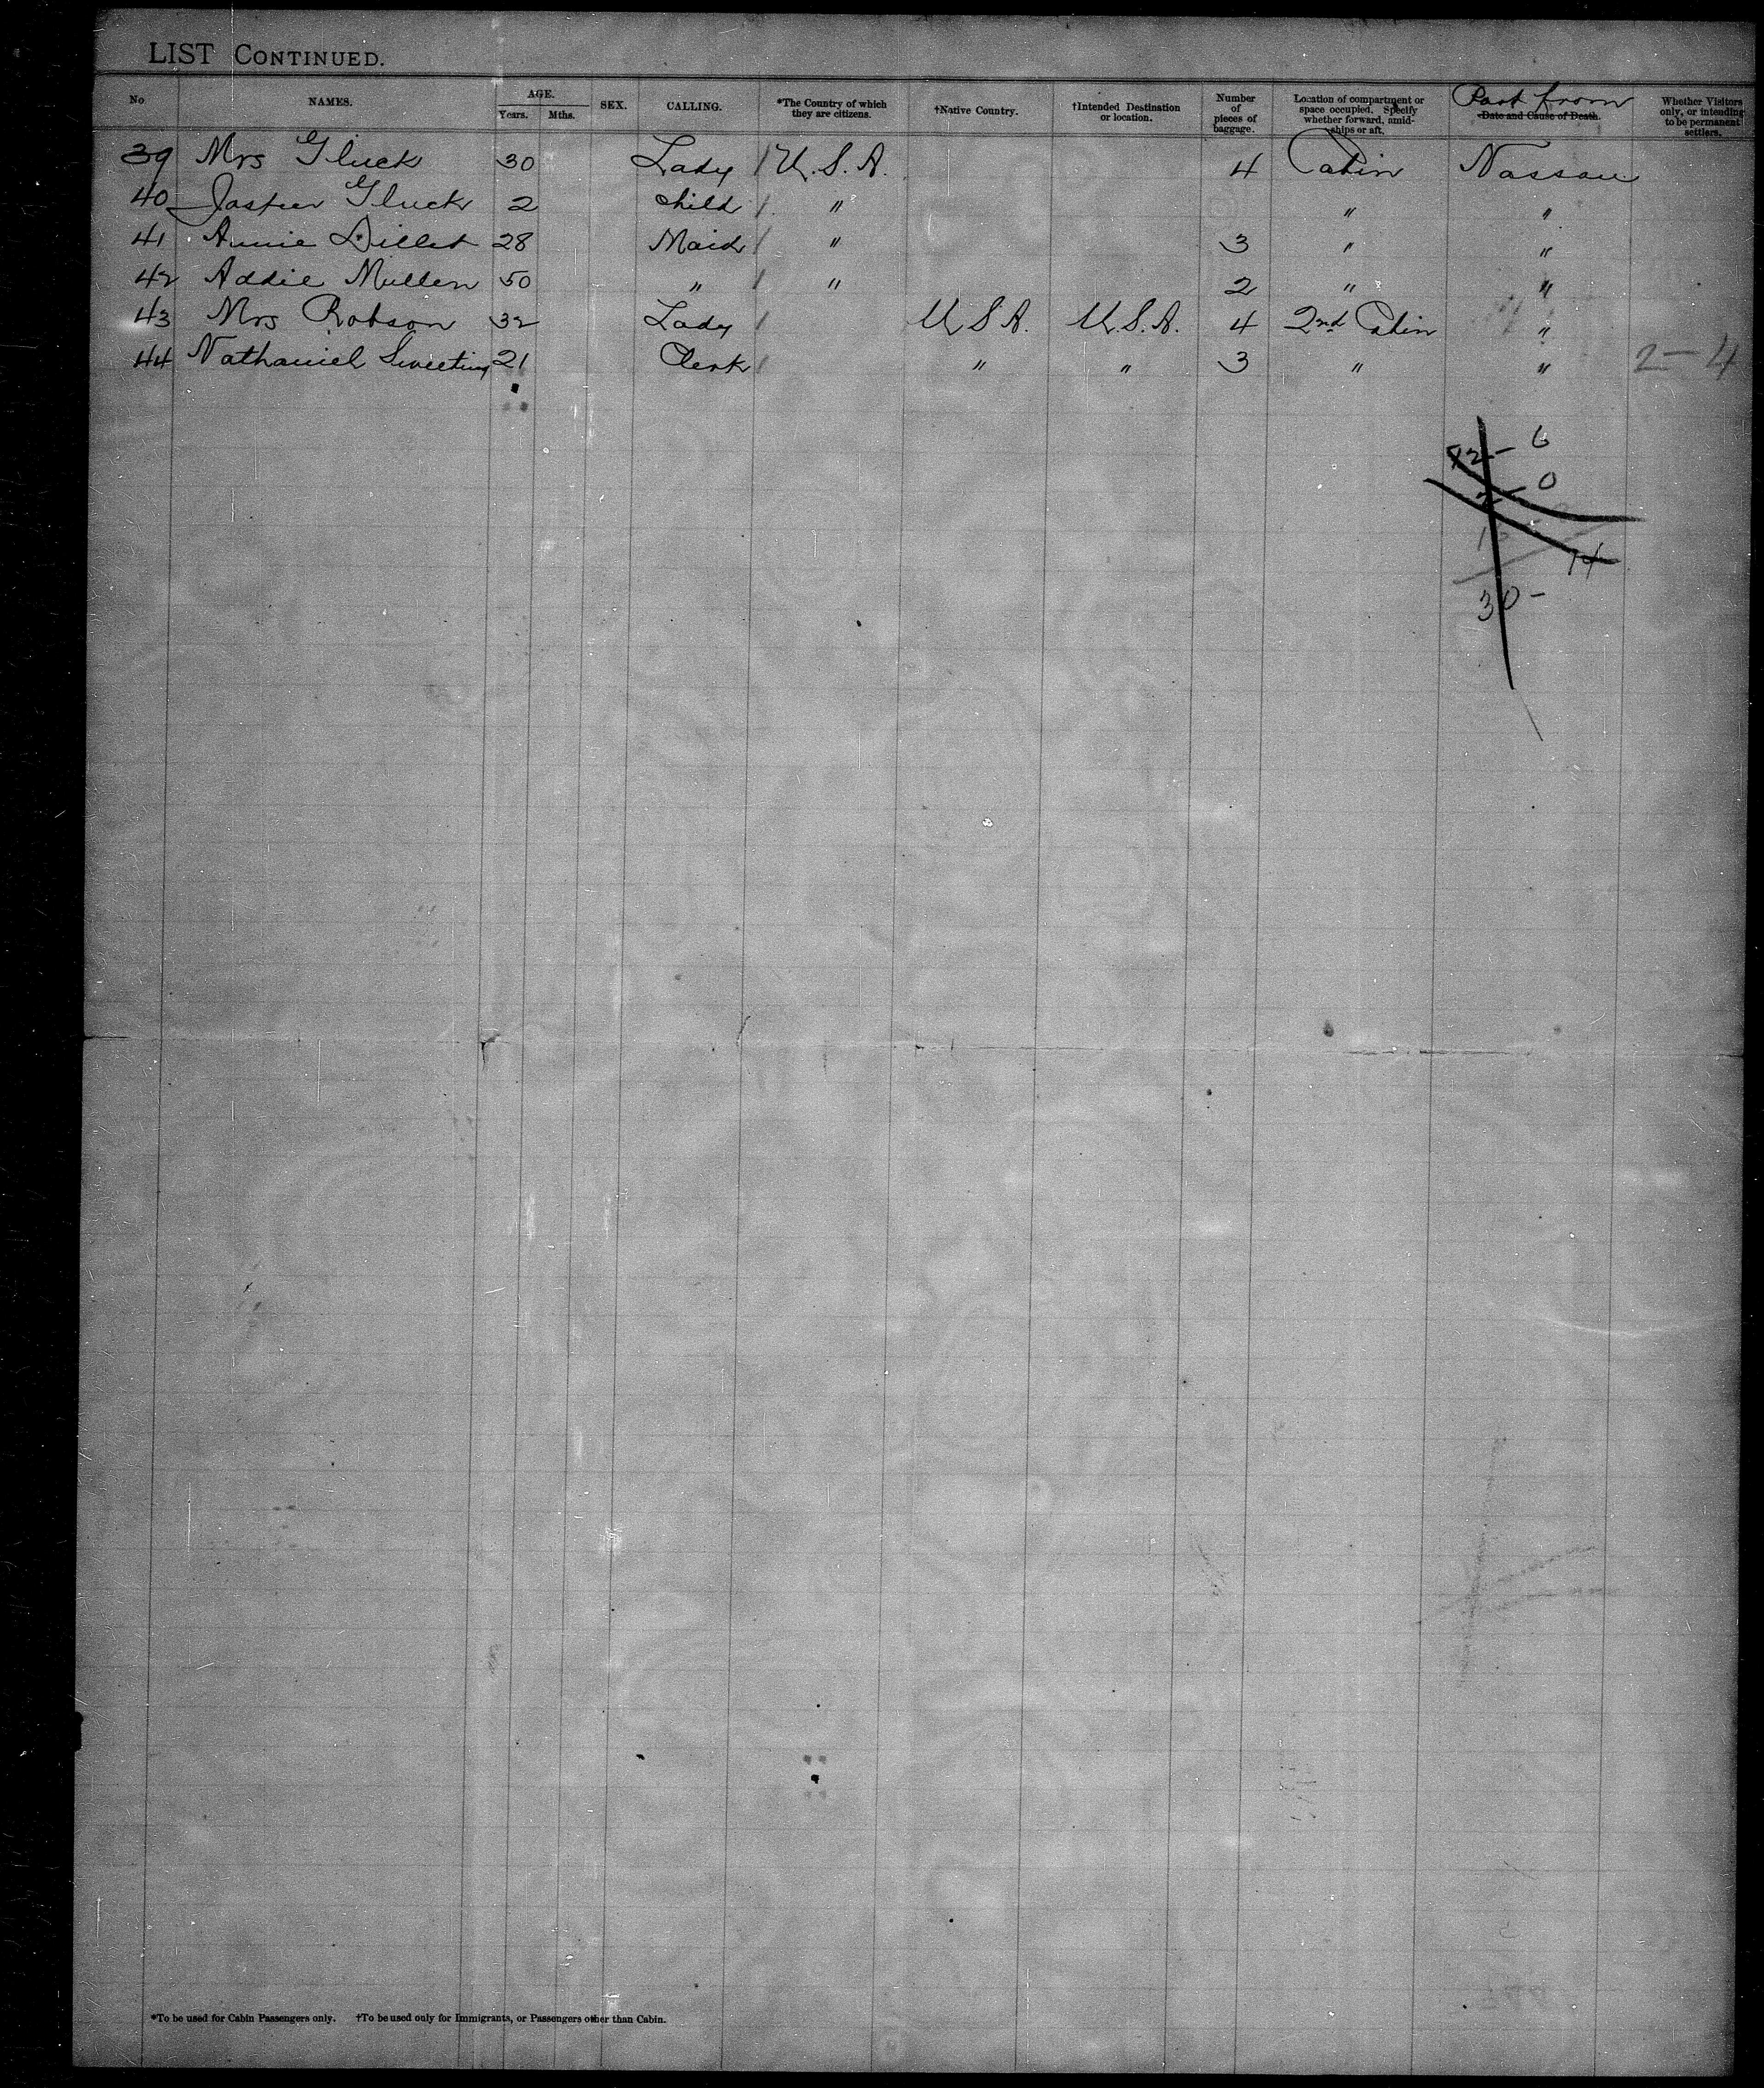 LIST CONTINUED.
No NAMES. AGE. Years. Mths. SEX. CALLING. *The Country of which they are citizens. †Native Country. †Intended Destination or location. Number of pieces of baggage. Location of compartment or space occupied. Specify whether forward, amidships or aft. Port from Date and Cause of Death. Whether Visitors only, or intending to be permanent settlers.
39 Mrs Gluck 30 Lady / U.S.A. 4 Cabin Nassau
40 Gluck 2 Child / " " "
41 Annie Dillet 28 Maid / " 3 " "
42 Addie Mullen 50 " / " 2 " "
43 Mrs Robson 32 Lady / U S A. U.S.A. 4 2nd Cabin "
44 Nathaniel Sweeting 21 Clerk / " " 3 " " 2-4
42- 6
2- 0
14
30-
*To be used for Cabin Passengers only. †To be used only for Immigrants, or Passengers other than Cabin.